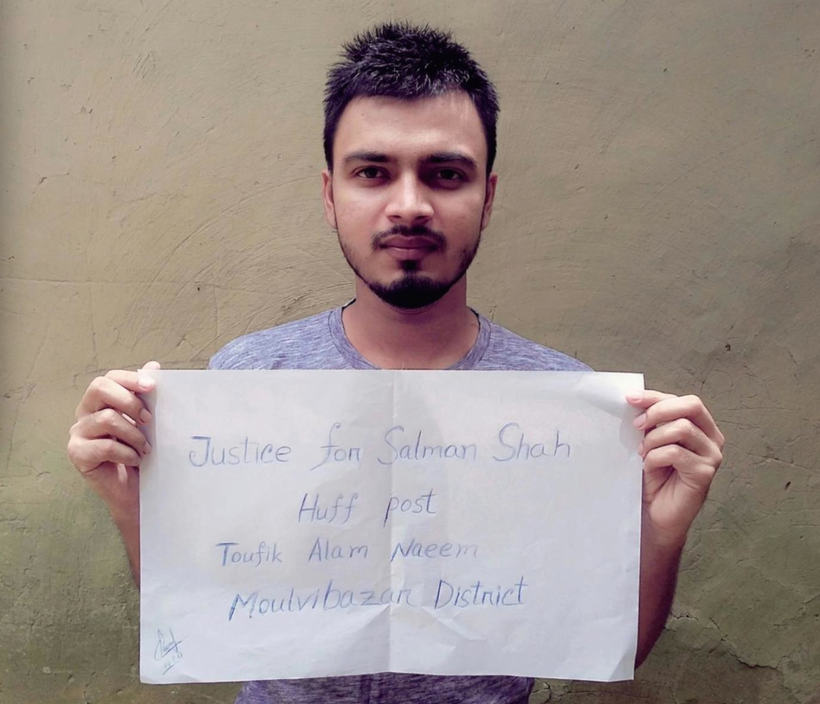 Justice for Salman Shah
Huff post
Toufik Alam Naeem
Moulvibazar District